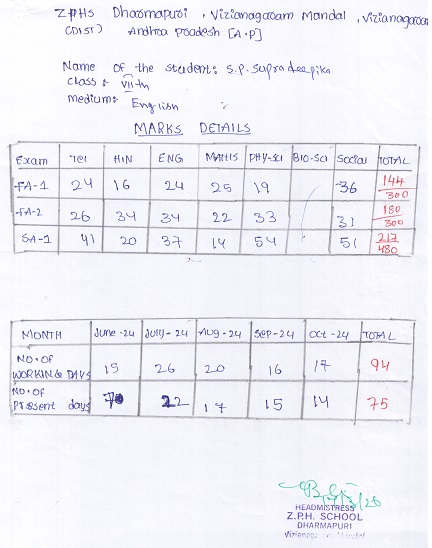 ZPHS Dharmapuri, Vizianagaram Mandal, Vizianagaram
(DIST) Andhra Pradesh [A.P]
Name of the student: S.P. Supradeepika
class: VIIth
medium: English
MARKS DETAILS
Exam Tel HIN ENG MATHS PHY-SCI BIO-SCI Social TOTAL
FA-1 24 16 24 25 19 36 144/300
FA-2 26 34 34 22 33 31 180/300
SA-1 41 20 37 14 54 51 217/480
MONTH June-24 July-24 Aug-24 Sep-24 Oct-24 TOTAL
NO. OF WORKING DAYS 15 26 20 16 17 94
NO. OF Present days 22 17 15 14 75
HEADMISTRESS
Z.P.H. SCHOOL
DHARMAPURI
Mandal